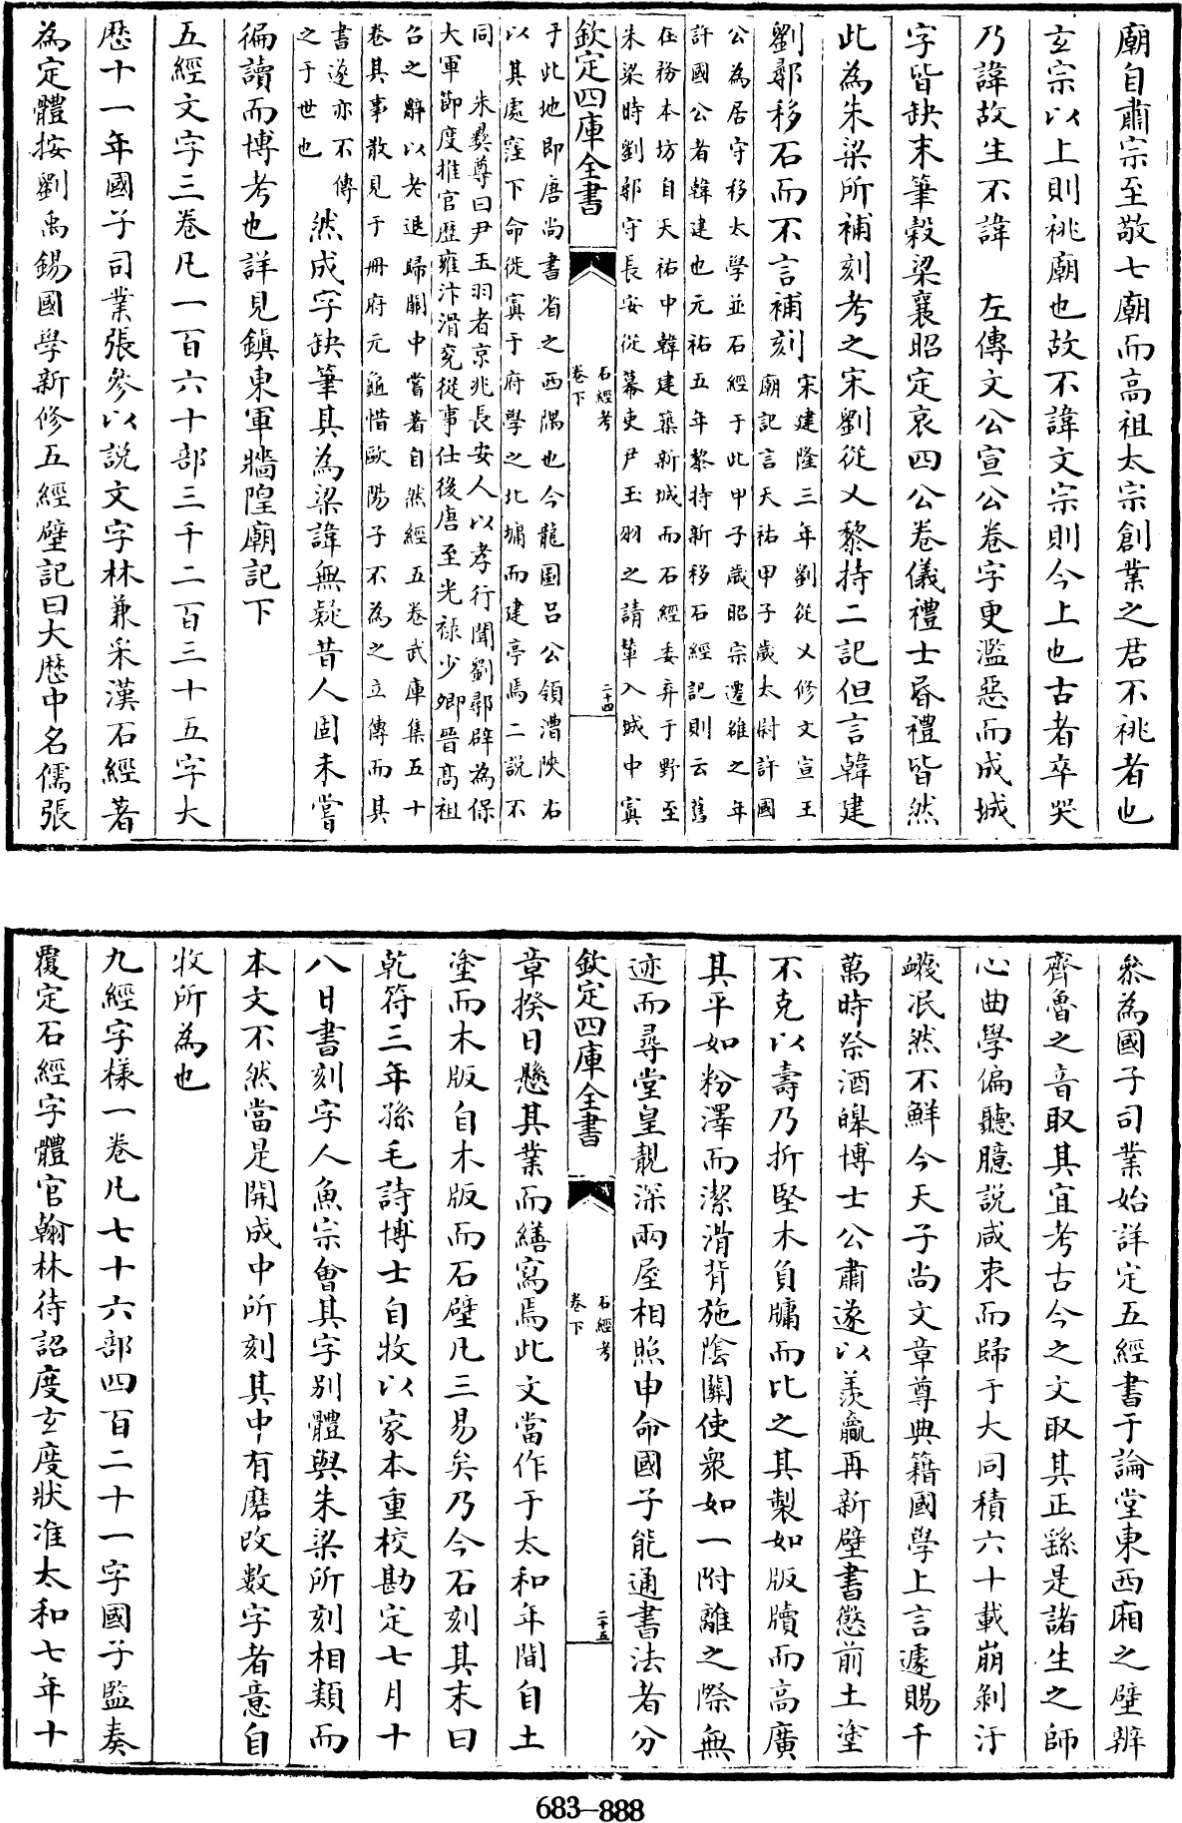 廟自肅宗至敬七廟而高祖太宗創業之君不祧者也
玄宗以上則祧廟也故不諱文宗則今上也古者卒哭
乃諱故生不諱　左傳文公宣公卷字更濫惡而成城
字皆缺末筆榖梁襄昭定哀四公卷儀禮士昬禮皆然
此為朱梁所補刻考之宋劉從乂黎持二記但言韓建
劉鄩移石而不言補刻
宋建隆三年劉從乂修文宣王
廟記言天祐甲子歲太尉許國
公為居守移太學並石經于此甲子歲昭宗遷雒之年
許國公者韓建也元祐五年黎持新移石經記則云舊
在務本坊自天祐中韓建築新城而石經委弃于野至
朱梁時劉鄩守長安從幕吏尹玉羽之請輦入城中寘
欽定四庫全書
石經考
卷下
二十四
于此地即唐尚書省之西隅也今龍圖呂公領漕陝右
以其處窪下命徙寘于府學之北墉而建亭焉二說不
同　朱彞尊曰尹玉羽者京兆長安人以孝行聞劉鄩辟為保
大軍節度推官歷雍汴滑兖從事仕後唐至光祿少卿晉高祖
召之辭以老退歸關中嘗著自然經五卷武庫集五十
卷其事散見于冊府元龜惜歐陽子不為之立傳而其
書遂亦不傳
之于世也
然成字缺筆其為梁諱無疑昔人固未嘗
徧讀而博考也詳見鎮東軍牆隍廟記下
五經文字三卷凡一百六十部三千二百三十五字大
歷十一年國子司業張參以說文字林兼采漢石經著
為定體按劉禹錫國學新修五經壁記曰大歷中名儒張
叅為國子司業始詳定五經書于論堂東西廂之壁辨
齊魯之音取其宜考古今之文取其正繇是諸生之師
心曲學偏聽臆說咸束而歸于大同積六十載崩剝汙
衊泯然不鮮今天子尚文章尊典籍國學上言遽賜千
萬時祭酒皥博士公肅遂以羨贏再新壁書懲前土塗
不克以壽乃折堅木負牖而比之其製如版牘而高廣
其平如粉澤而潔滑背施陰關使衆如一附離之際無
迹而尋堂皇靚深兩屋相照申命國子能通書法者分
欽定四庫全書
石經考
卷下
二十五
章揆日懸其業而繕寫焉此文當作于太和年間自土
塗而木版自木版而石壁凡三易矣乃今石刻其末曰
乾符三年孫毛詩博士自牧以家本重校勘定七月十
八日書刻字人魚宗會其字别體與朱梁所刻相類而
本文不然當是開成中所刻其中有磨改數字者意自
牧所為也
九經字様一卷凡七十六部四百二十一字國子監奏
覆定石經字體官翰林待詔度玄度狀准太和七年十
683-888